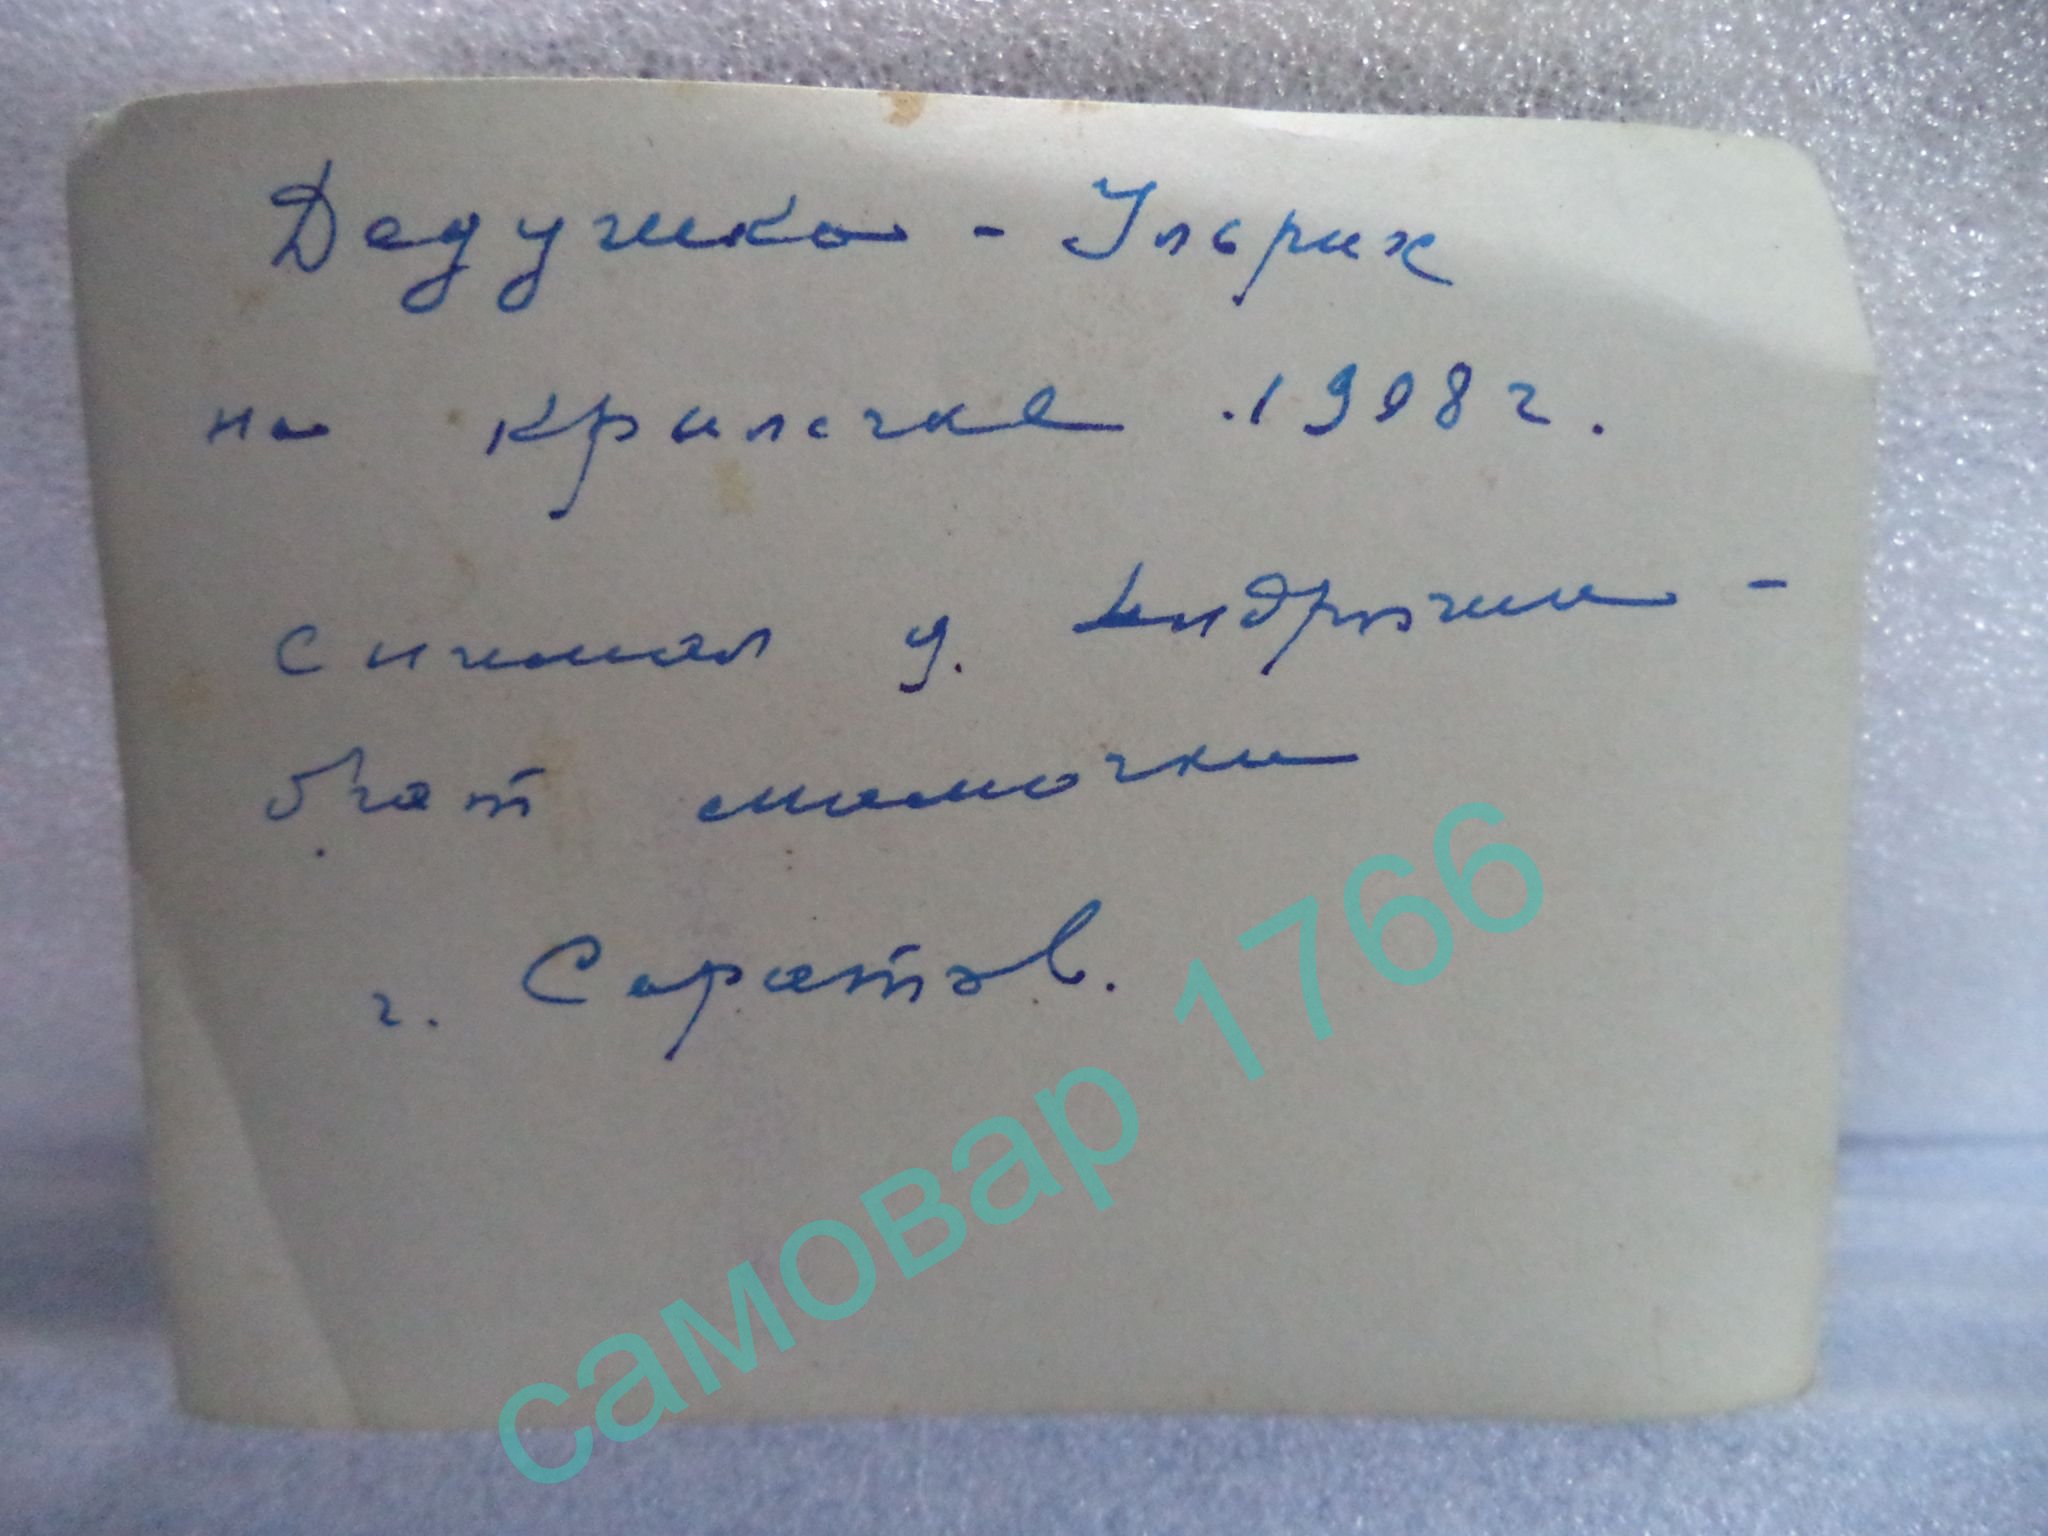 Дедушка - Ульрих
на крылечке .1908 г.
снимал д. Андрюши -
брат мамочки
г. Саратов.
самовар 1766